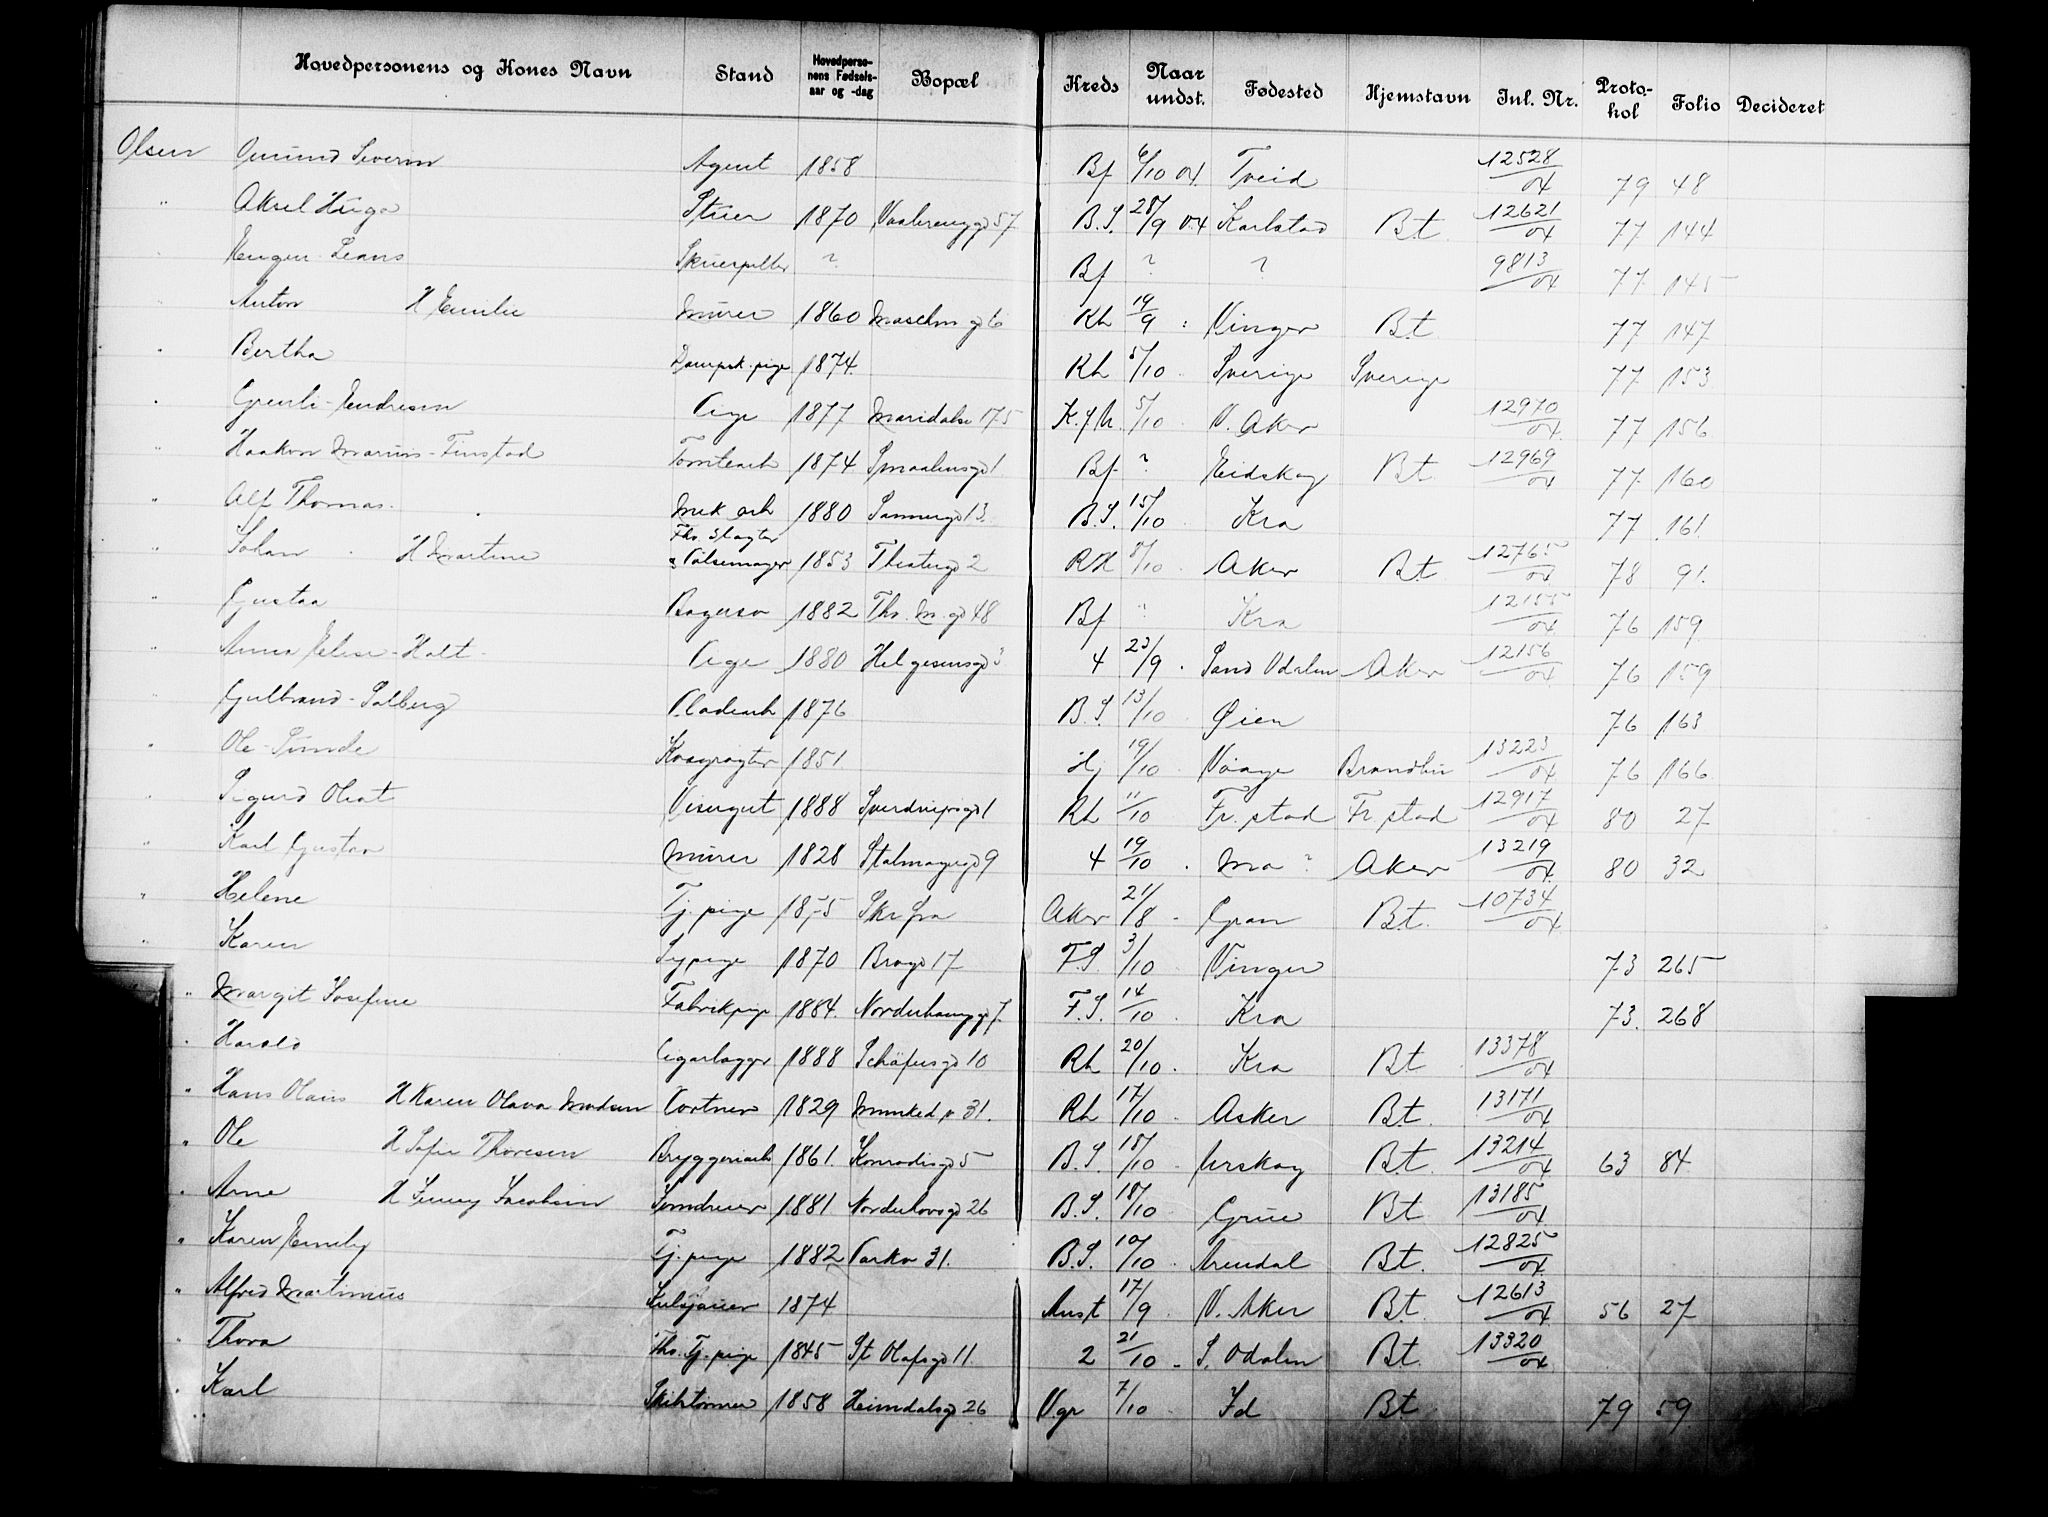 Hovedpersonens og Kones Navn Stand Hovedpersonens Fødselsaar og -dag Bopæl Kreds Naar undst. Fødested Hjemstavn Inl. Nr. Protokol Folio Decideret
Olsen Severin Agent 1858 Bf 6/10 04. Tveid 12528/04 79 48
" Aksel Hugo Stuer 1870 Vaalerenggd 57 B.S. 28/9 04 Karlstad Bt. 12621/04 77 144
Bf ? ? 9813/04 77 145
" Anton H Emilie Murer 1860 6 Kh 19/9 Vinger Bt. 77 147
" Bertha 1874. Kh 5/10 Sverige Sverige 77 153
" Pige 1877 Maridalsv 175 5/10 V. Aker 12970/04 77 156
" Haakon Marius-Finstad Tomtearb 1874 Smaalensgd 1 Bf ? Eidskog Bt 12969/04 77 160
" Alf Thomas. Mek arb 1880 Sannergd 13. B.S. 15/10 Kra 77 161.
" Johan H Martine Fhv. Slagter & Pølsemager 1853 Theatergd 2 RH 8/10 Aker Bt. 12765/04 78 91.
" Gustav Bagersv 1882 Th. M. gd 48 Bf ? Kra 12155/04 76 159
" Anna Elise-Holt- Pige 1880 Helgesensgd 3 4 23/9 Sand Odalen Aker 12156/04 76 159
" Gulbrand-Solberg Pladearb 1876 B.S. 13/10 Øien 76 163
" Ole-Sunde 1851. Hj 19/10 Vaage Brandbu 13223/04 76 166
" Sigurd Olvat Visergut 1888 Sverdrupsgd 1 Rh 11/10 Fr. stad Fr. stad 12917/04 80 27
" Karl Gustav Murer 1828 9 4 19/10 ? Aker 13219/04 80 32
" Helene Tj. pige 1875 Aker 21/8 Gran Bt. 10734/04
" Karen Sypige 1870 Brogd 17 F.S. 3/10 Vinger 73 265
" Margit Josefine Fabrikpige 1884. Norderhauggd 7. F.S. 14/10 Kra 73. 268
" Harald Cigarlægger 1888 Schöfersgd 10 Rh 20/10 Kra Bt 13378/04
" Hans Olaus H Karen Olava Madsen Portner 1829 Munkedv 31. Rh 17/10 Asker Bt. 13171/04
" Ole H Sofie Thoresen Bryggeriarb 1861. Konradisgd 5 B.S. 18/10 Urskog Bt. 13214/04 63 84
" Arne H Jenny Jacobsen Jerndreier 1881 Norderhovsgd 26 B.S. 18/10 Grue Bt 13185/04
" Karen Emily Tj. pige 1882 Parkv 31. B.S. 10/10 Arendal Bt. 12825/04
" Alfred Martinius 1874 Aust 17/9 V. Aker Bt. 12613/04 56 27
" Thora Fhv. Tj. pige 1845 St Olafsgd 11. 2 21/10 S. Odalen Bt. 13320/04
" Karl Skibtømmer 1858 Heimdalsgd 26 Vgr 7/10 Id Bt 79 59